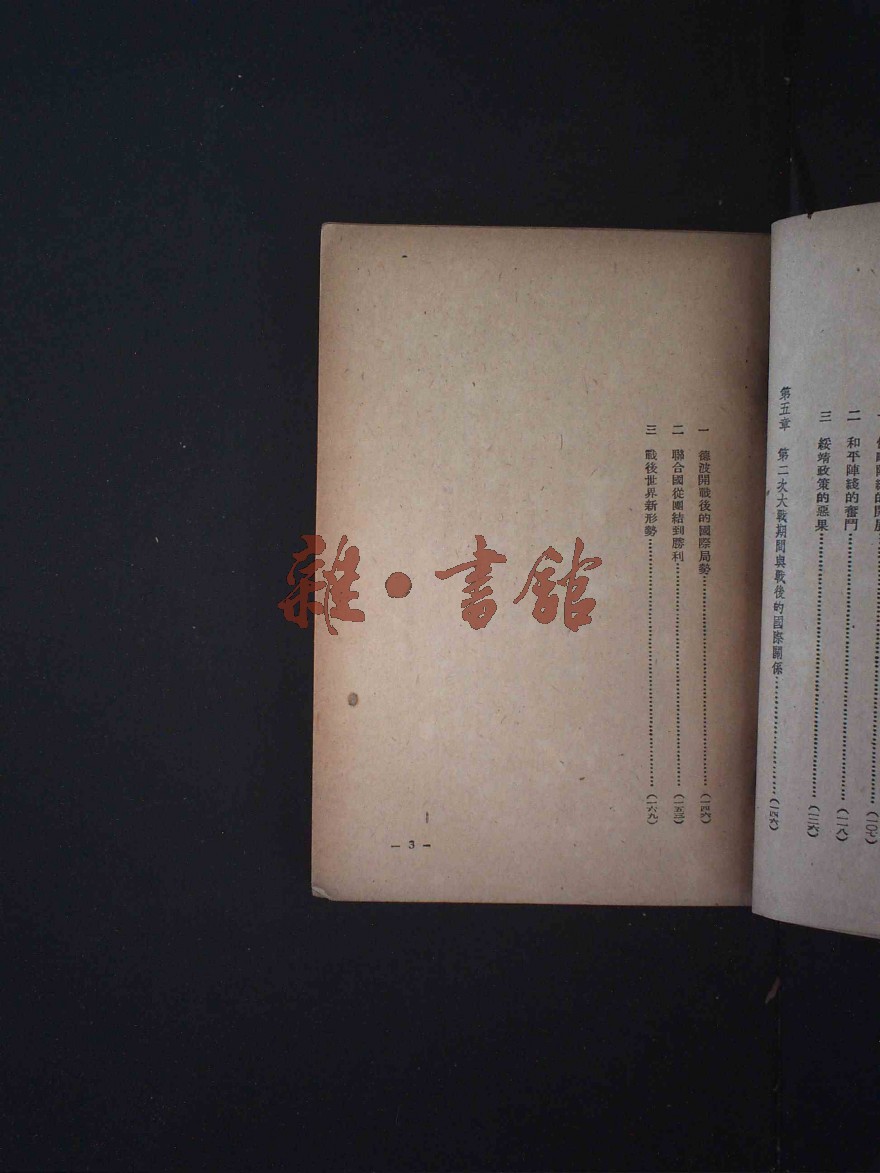 二 和平陣綫的奮鬥……(一一八)
三 綏靖政策的惡果……(一三六)
第五章 第二次大戰期間與戰後的國際關係……(一四六)
一 德波開戰後的國際局勢……(一四六)
二 聯合國從團結到勝利……(一五三)
三 戰後世界新形勢……(一六九)
— 3 —
雜·書館